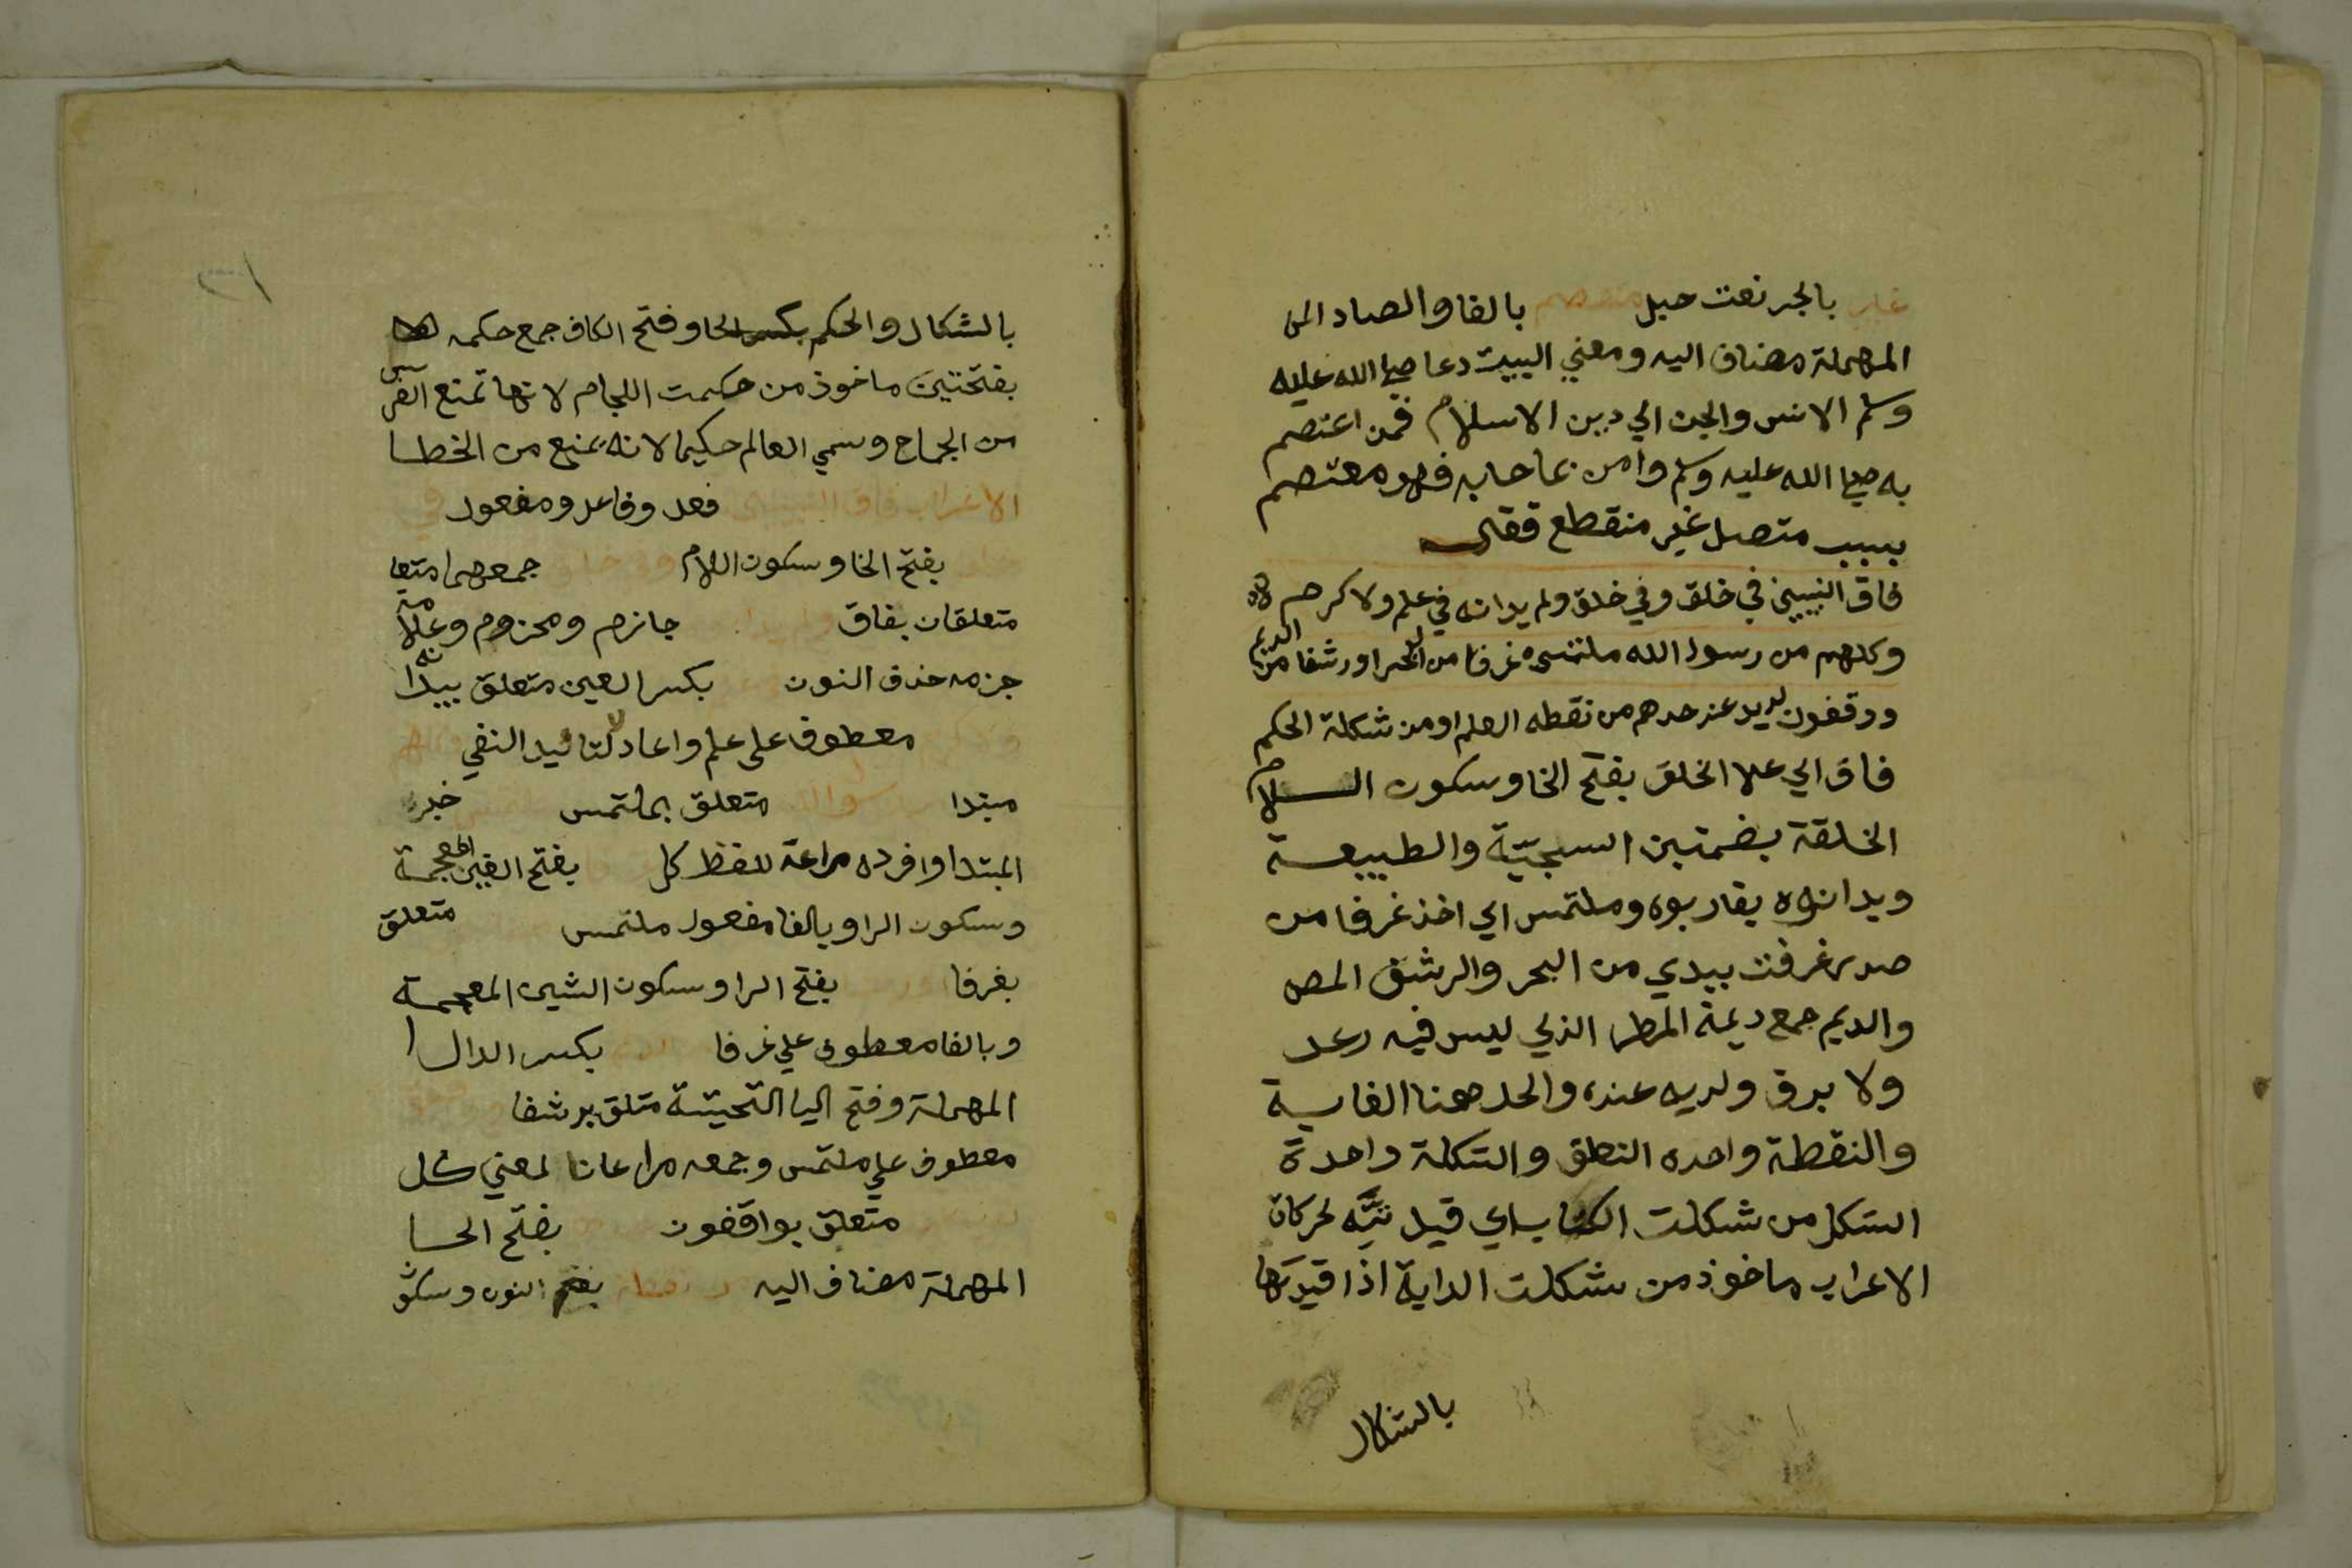 غير بالجر نعت حبل منفصم بالفا والصاد الى
المهملة مضاف اليه ومعني البيت دعا صلي الله عليه
وسلم الانس والجن الي دين الاسلام فمن اعتصم
به صلي الله عليه وسلم وامن بما جا به فهو معتصم
بسبب متصل غير منقطع فقال
فاق النبيين في خلق وفي خلق ولم يدانوه في علم ولا كرم
وكلهم من رسول الله ملتمس غرفا من البحر او رشفا من الديم
وواقفون لديه عند حدهم من نقطه العلم او من شكلة الحكم
فاق اي علا الخلق بفتح الخا وسكون اللام
الخلقة بضمتين السجيّة والطبيعة
ويدانوه يقاربوه وملتمس اي اخذ غرفا من
صدر غرفت بيدي من البحر والرشف المص
والديم جمع ديمة المطر الذي ليس فيه رعد
ولا برق ولديه عنده والحد هنا الغاية
والنقطة واحده النطق والشكلة واحدة
الشكل من شكلت الكتاب اي قيدته بحركات
الاعراب ماخوذ من شكلت الدابة اذا قيدتها
بالشكال
بالشكال والحكم بكسر الحا وفتح الكاف جمع حكمه
بفتحتين ماخوذ من حكمت اللجام لانها تمنع الفرس
من الجماح وسمي العالم حكيما لانه يمنع من الخطا
الاعراب فاق النبيين فعل وفاعل ومفعول في
خلق بفتح الخا وسكون اللام وفي خلق جمعهما متعا
متعلقان بفاق ولم يدا جازم ومجزوم وعلامة
جزمه حذف النون بكسر العين متعلق بيدانه
ولا كرم معطوف علي علم واعاد لا لتاكيد النفي وكلهم
مبتدا من رسول الله متعلق بملتمس ملتمس خبر
المبتدا وافرده مراعة للفظ كل بفتح الغين المعجمة
وسكون الرا وبالفا مفعول ملتمس متعلق
بغرفا بفتح الرا وسكون الشين المعجمة
وبالفا معطوف علي غرفا بكسر الدال ا
المهملة وفتح اليا التحيتة متلق برشفا
معطوف علي ملتمس وجمعه مراعاتا لمعني كل
متعلق بواقفون بفتح الحا
المهملة مضاف اليه من نقطة بفتح النون وسكو